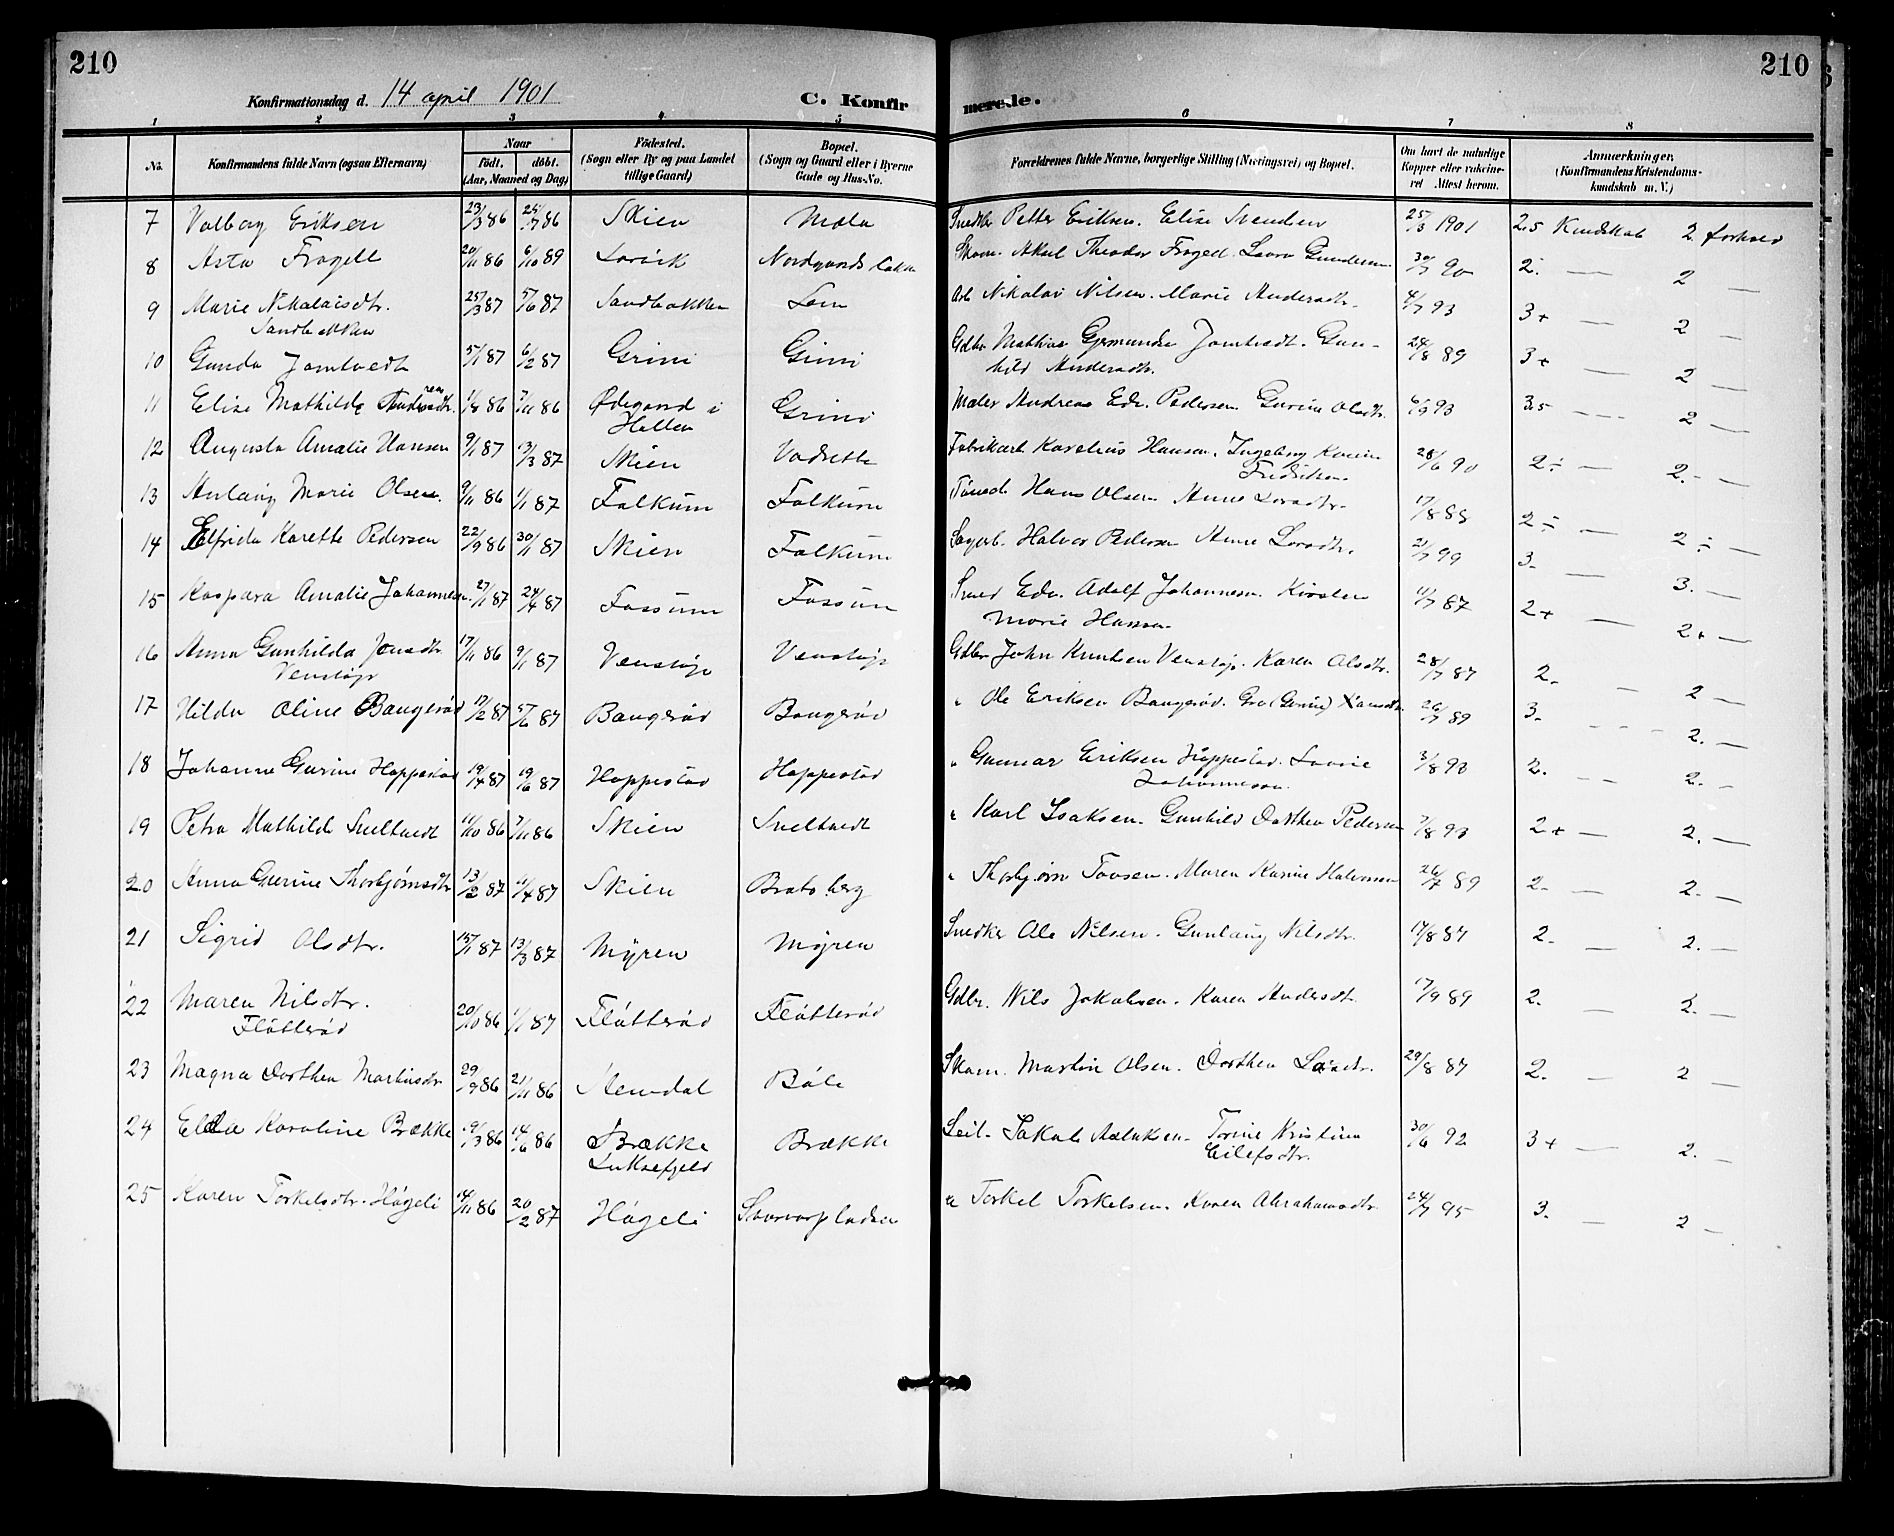 210
210
Konfirmationsdag d. 14 april 1901
C. Konfir
merede.
1 2 3 4 5 6 7 8
No. Konfirmandens fulde Navn (ogsaa Efternavn) Naar født. døbt. (Aar, Maaned og Dag) Fødested. (Sogn eller By og paa Landet tillige Gaard) Bopæl. (Sogn og Gaard eller i Byerne Gade og Hus-No. Forældrenes fulde Navne, borgerlige Stilling (Næringsvei) og Bopæl. Om havt de naturlige Kopper eller vakcineret Attest herom. Anmærkninger. (Konfirmandens Kristendomskundskab m. V.)
7 Valborg Eriksen 23/3 86 25/7 86 Skien Mæla Snedker Petter Eriksen. Elise Svendsen 25/3 1901 2.5 Kundskab 2. forhold
8 Asta Fragell 20/11 86 6/10 89 Larvik Nordgaards Skom. Theodor Fragell. Laura Gundersen 30/7 90 2. — 2 —
9 Marie Nikolaisdtr. 25/3 87 5/6 87 Sandbakken Lem Arb Nikolai Nilsen. Marie Andersdtr. 4/7 93 3+ — 2 —
Sandbakken
10 Gunda Jomtvedt 5/1 87 6/2 87 Grini Grini Gdbr Mathias Jomtvedt. Gun-
hild Andersdtr. 24/8 89 3+ — 2 —
11 Elise Mathilde Andersdtr. 1/8 86 7/11 86 Ødegaard i Grini Maler Andreas Edv. Pedersen Gurine Olsdtr. 6/9 93 3.5 --- 2 —
Hallen
12 Augusta Amalie Hansen 9/1 87 13/3 87 Skien Vadrette Fabrikarb Karelius Hansen. Ingeborg Karine 28/6 90 2÷ — 2. —
Fredriksen
13 Aslaug Marie Olsen 9/11 86 1/1 87 Falkum Falkum Hans Olsen Anne Larsdtr. 17/8 88 2÷ — 2÷ —
14 Elfrida Karette Pedersen 22/9 86 30/1 87 Skien Falkum Sagarb. Halvor Pedersen Anne Larsdtr. 21/7 99 3. — 3. —
15 Kaspara Amalie Johannesen. 27/1 87 24/4 87 Fossum Fossum Smed Edv. Adolf Johannesen. Kirsten 11/7 87 2+ — 2+ —
Marie Hansen
16 Anna Gunhilda Jonsdtr 17/11 86 9/1 87 Venstøp Venstøp Gdbr John Knudsen Venstøp. Karen Olsdtr. 28/7 87 2. — 2 —
Venstøp
17 Hilda Oline Bangerød 17/2 87 5/6 87 Bangerød Bangerød " Ole Eriksen Bangerød. Gro (Gurine) Hansdtr. 26/7 89 3. --- 2. —
18 Johanne Gurine Hoppestad 19/4 87 19/6 87 Hoppestad Hoppestad " Gunnar Eriksen Hoppestad. Lovise 3/8 93 2. -- 2. —
Johannesen.
19 Petra Mathilde Sneltvedt 11/10 86 7/11 86 Skien Sneltvedt " Karl Isaksen. Gunhild Dorthea Pedersen 7/8 93 2+ — 2. —
20 Anna Gurine Thorbjørnsdtr 13/2 87 11/4 87 Skien Bratsberg " Thorbjørn Tovsen. Maren Karine Halvorsen 26/7 89 2. — 2. —
21 Sigrid Olsdtr. 15/1 87 13/3 87 Myren Myren Snedker Ole Nilsen. Gunlaug Nilsdtr. 17/8 87 2. — 2. —
22 Maren Nilsdtr. 20/10 86 1/1 87 Fløtterød Fløtterød Gdbr. Nils Jakobsen. Karen Andersdtr. 17/9 89 2. — 2. —
Fløtterød
23 Magna Dorthea Martinsdtr 29/9 86 21/11 86 Stemdal Bøle Skom. Martin Olsen. Dorthea Larsdtr. 29/8 87 2. — 2 —
24 Elda Karoline Brække 19/3 86 14/6 86 Brække Brække Leil. Jakob Torine Kristine 30/6 92 3+ — 2. —
Luksefjeld Eilefsdtr.
25 Karen Torkelsdtr. Høgeli 14/11 86 20/2 87 Høgeli " Torkel Torkelsen. Karen Abrahamsdtr. 24/7 95 3. — 2 —